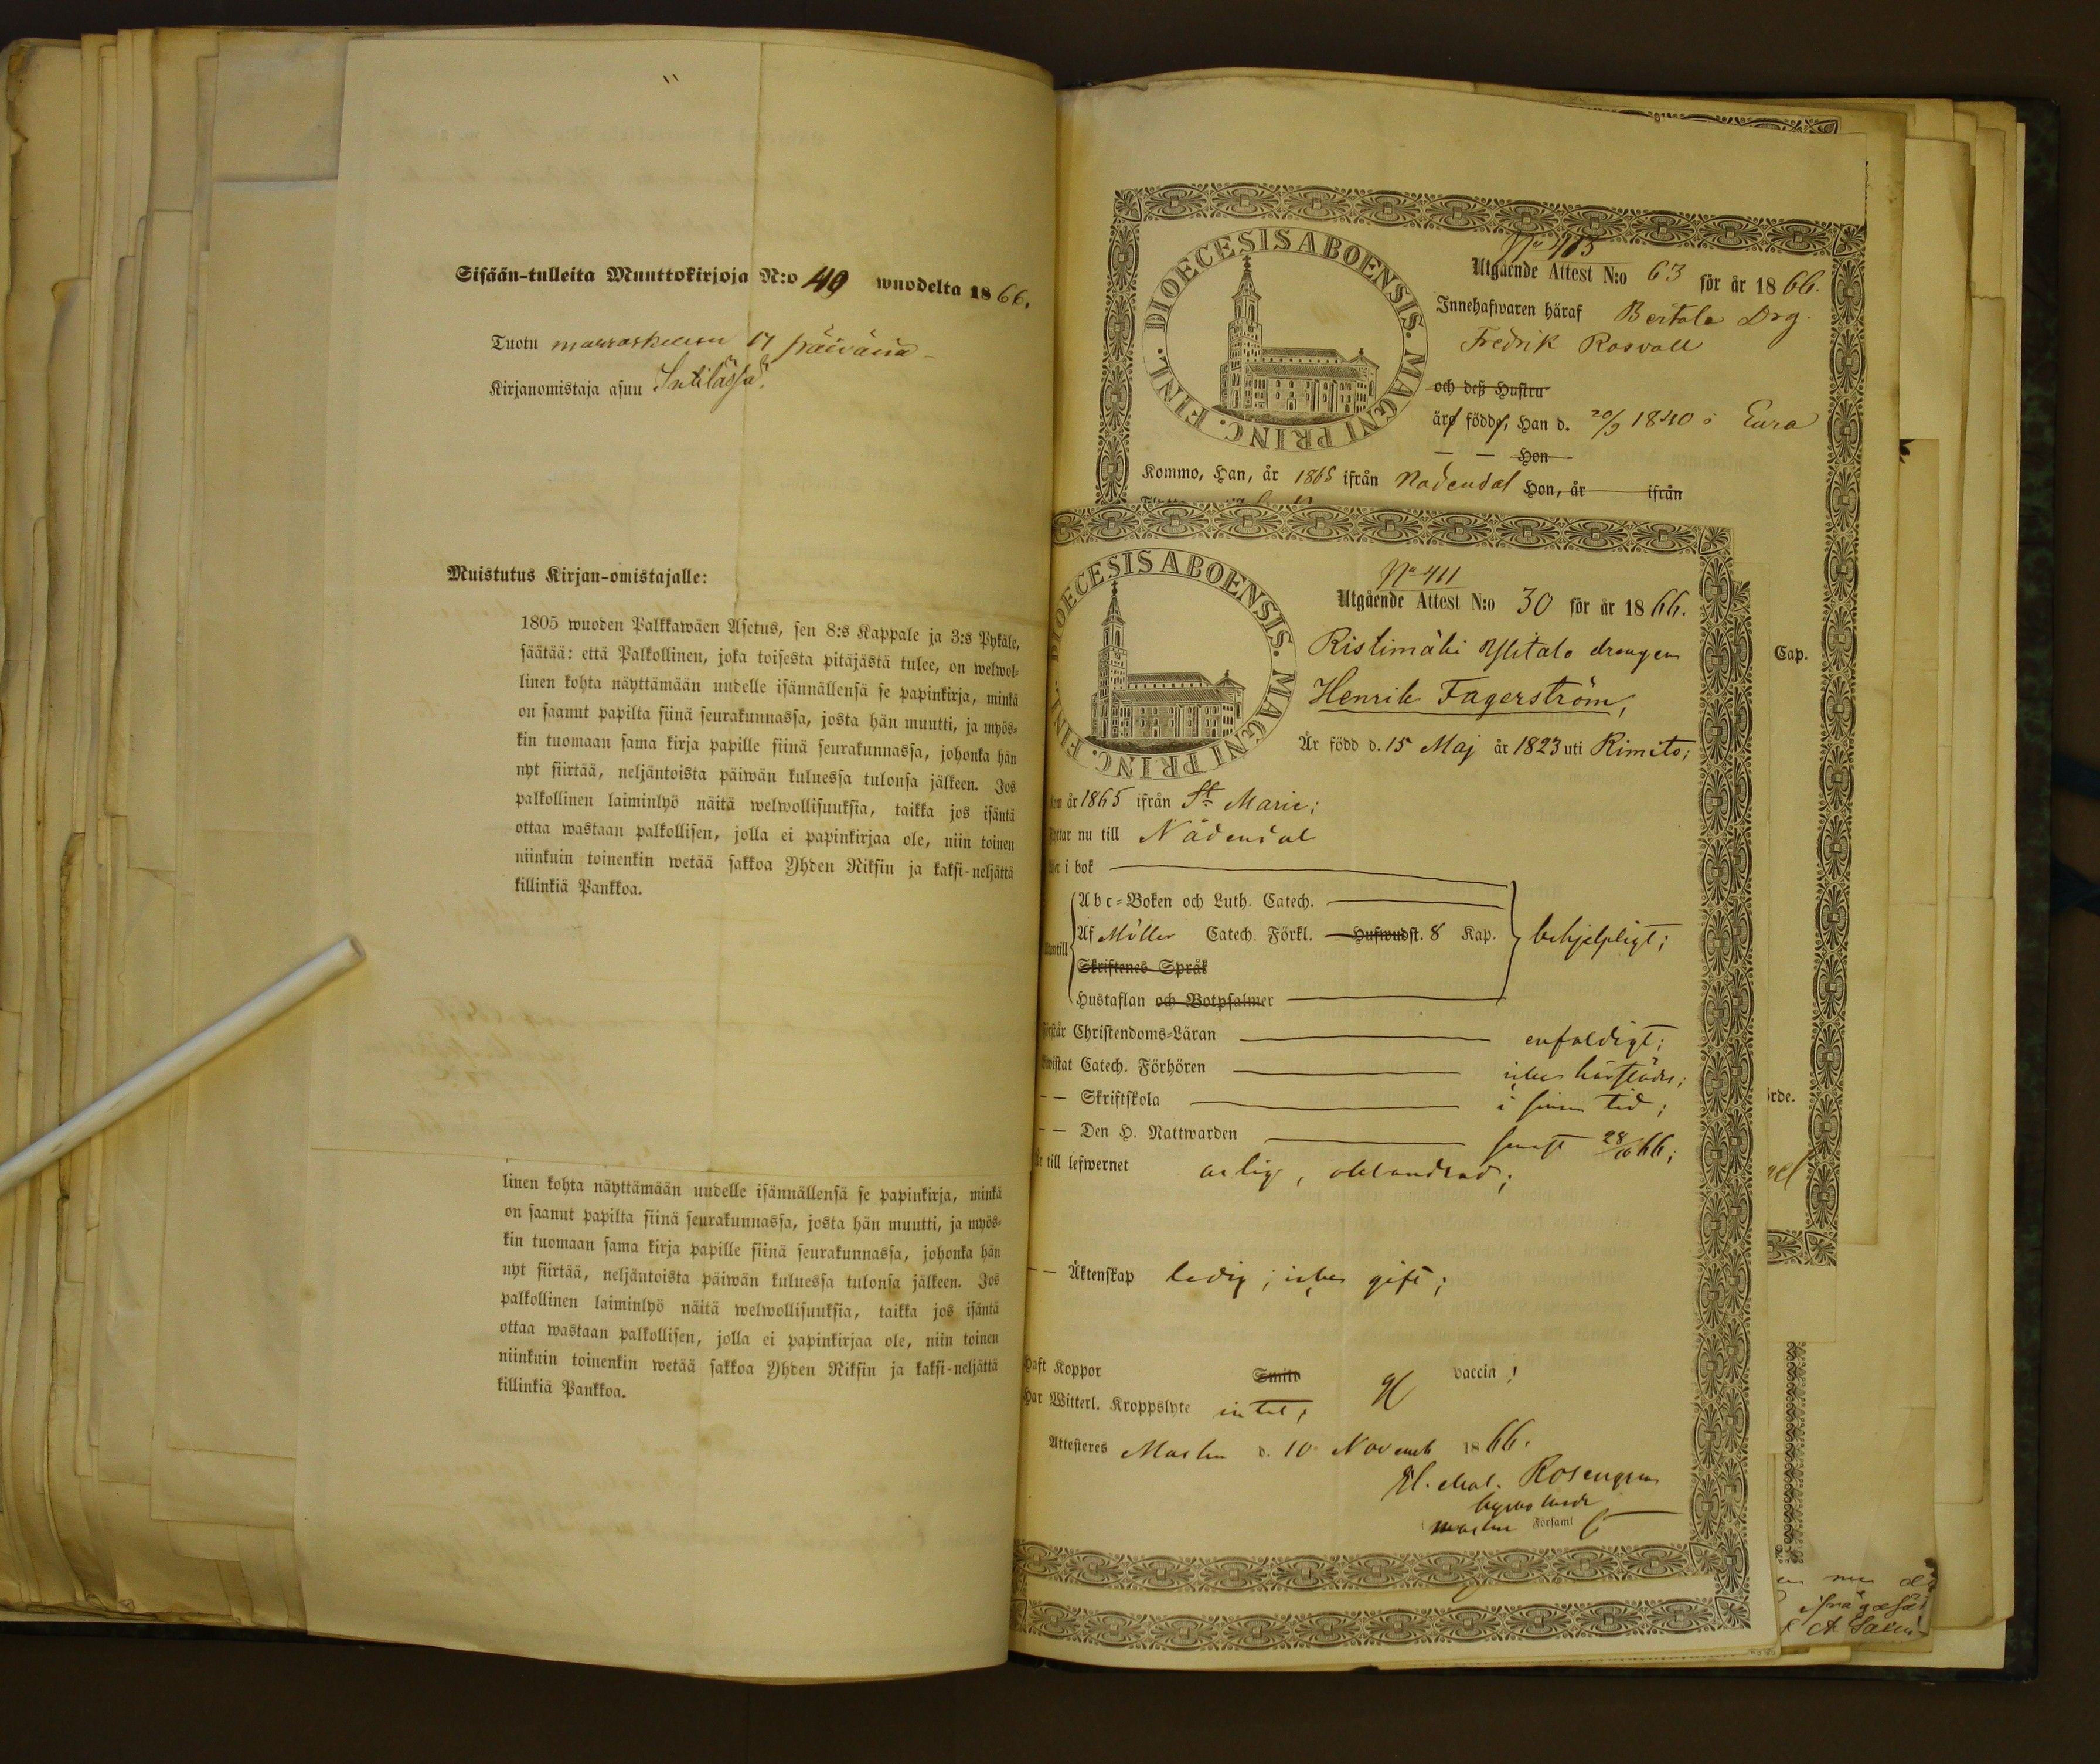 Sisään-tulleita Muuttokirjoja N:o 49 wuodelta 1866.
Tuotu marraskuun 17 päivänä
Kirjanomistaja asuu
Muistutus Kirjan-omistajalle:
1805 wuoden Palkkawäen Asetus, sen 8:s Kappale ja 3:s Pykäle,
säätää: että Palkollinen, joka toisesta pitäjästä tulee, on welwol-
linen kohta näyttämään uudelle isännällensä se papinkirja, minkä
on saanut papilta siinä seurakunnassa, josta hän muutti, ja myös-
kin tuomaan sama kirja papille siinä seurakunnassa, johonka hän
nyt siirtää, neljäntoista päiwän kuluessa tulonsa jälkeen. Jos
palkollinen laiminlyö näitä welwollisuuksia, taikka jos isäntä
ottaa wastaan palkollisen, jolla ei papinkirjaa ole, niin toinen
niinkuin toinenkin wetää sakkoa Yhden Riksin ja kaksi-neljättä
killinkiä Pankkoa.
linen kohta näyttämään uudelle isännällensä se papinkirja, minkä
on saanut papilta siinä seurakunnassa, josta hän muutti, ja myös-
kin tuomaan sama kirja papille siinä seurakunnassa, johonka hän
nyt siirtää, neljäntoista päiwän kuluessa tulonsa jälkeen. Jos
palkollinen laiminlyö näitä welwollisuuksia, taikka jos isäntä
ottaa wastaan palkollisen, jolla ei papinkirjaa ole, niin toinen
niinkuin toinenkin wetää sakkoa Yhden Riksin ja kaksi-neljättä
killinkiä Pankkoa.
DIOECESIS ABOENSIS. MAGNI PRINC. FINL.
No 413
Utgående Attest N:o 63 för år 1866.
Innehafwaren häraf Bertala Drg.
Fredrik Rosvall
och deß Hustru
äro födde, Han d. 20/9 1840 i Eura
— — Hon
Kommo, Han, år 1865 ifrån Nådendal Hon, år ifrån
DIOECESIS ABOENSIS. MAGNI PRINC. FINL.
No 411
Utgående Attest N:o 30 för år 1866.
Ristimäki Ylitalo drengen
Henrik Fagerström,
Är född d. 15 Maj år 1823 uti Rimito;
kom år 1865 ifrån St Marie;
nu till Nådendal
i bok
Abc-Boken och Luth. Catech.
Af Möller Catech. Förkl. Hufwudst. 8 Kap. behjelpligt;
Skriftenes Språk
Hustaflan och Botpsalmer
Christendoms-Läran enfaldigt;
Catech. Förhören icke härstädes;
— — Skriftskola i sinom tid;
— — Den H. Nattwarden senast 28/10 66;
till lefwernet ärlig, oklandrad;
— — Äktenskap ledig; icke gift;
Haft Koppor Smitt vaccin;
Har Witterl. Kroppslyte intet;
Attesteres Masku d. 10 Novemb 1866.
Rosengren
kyrkoherde
Masku Församl
Cap.